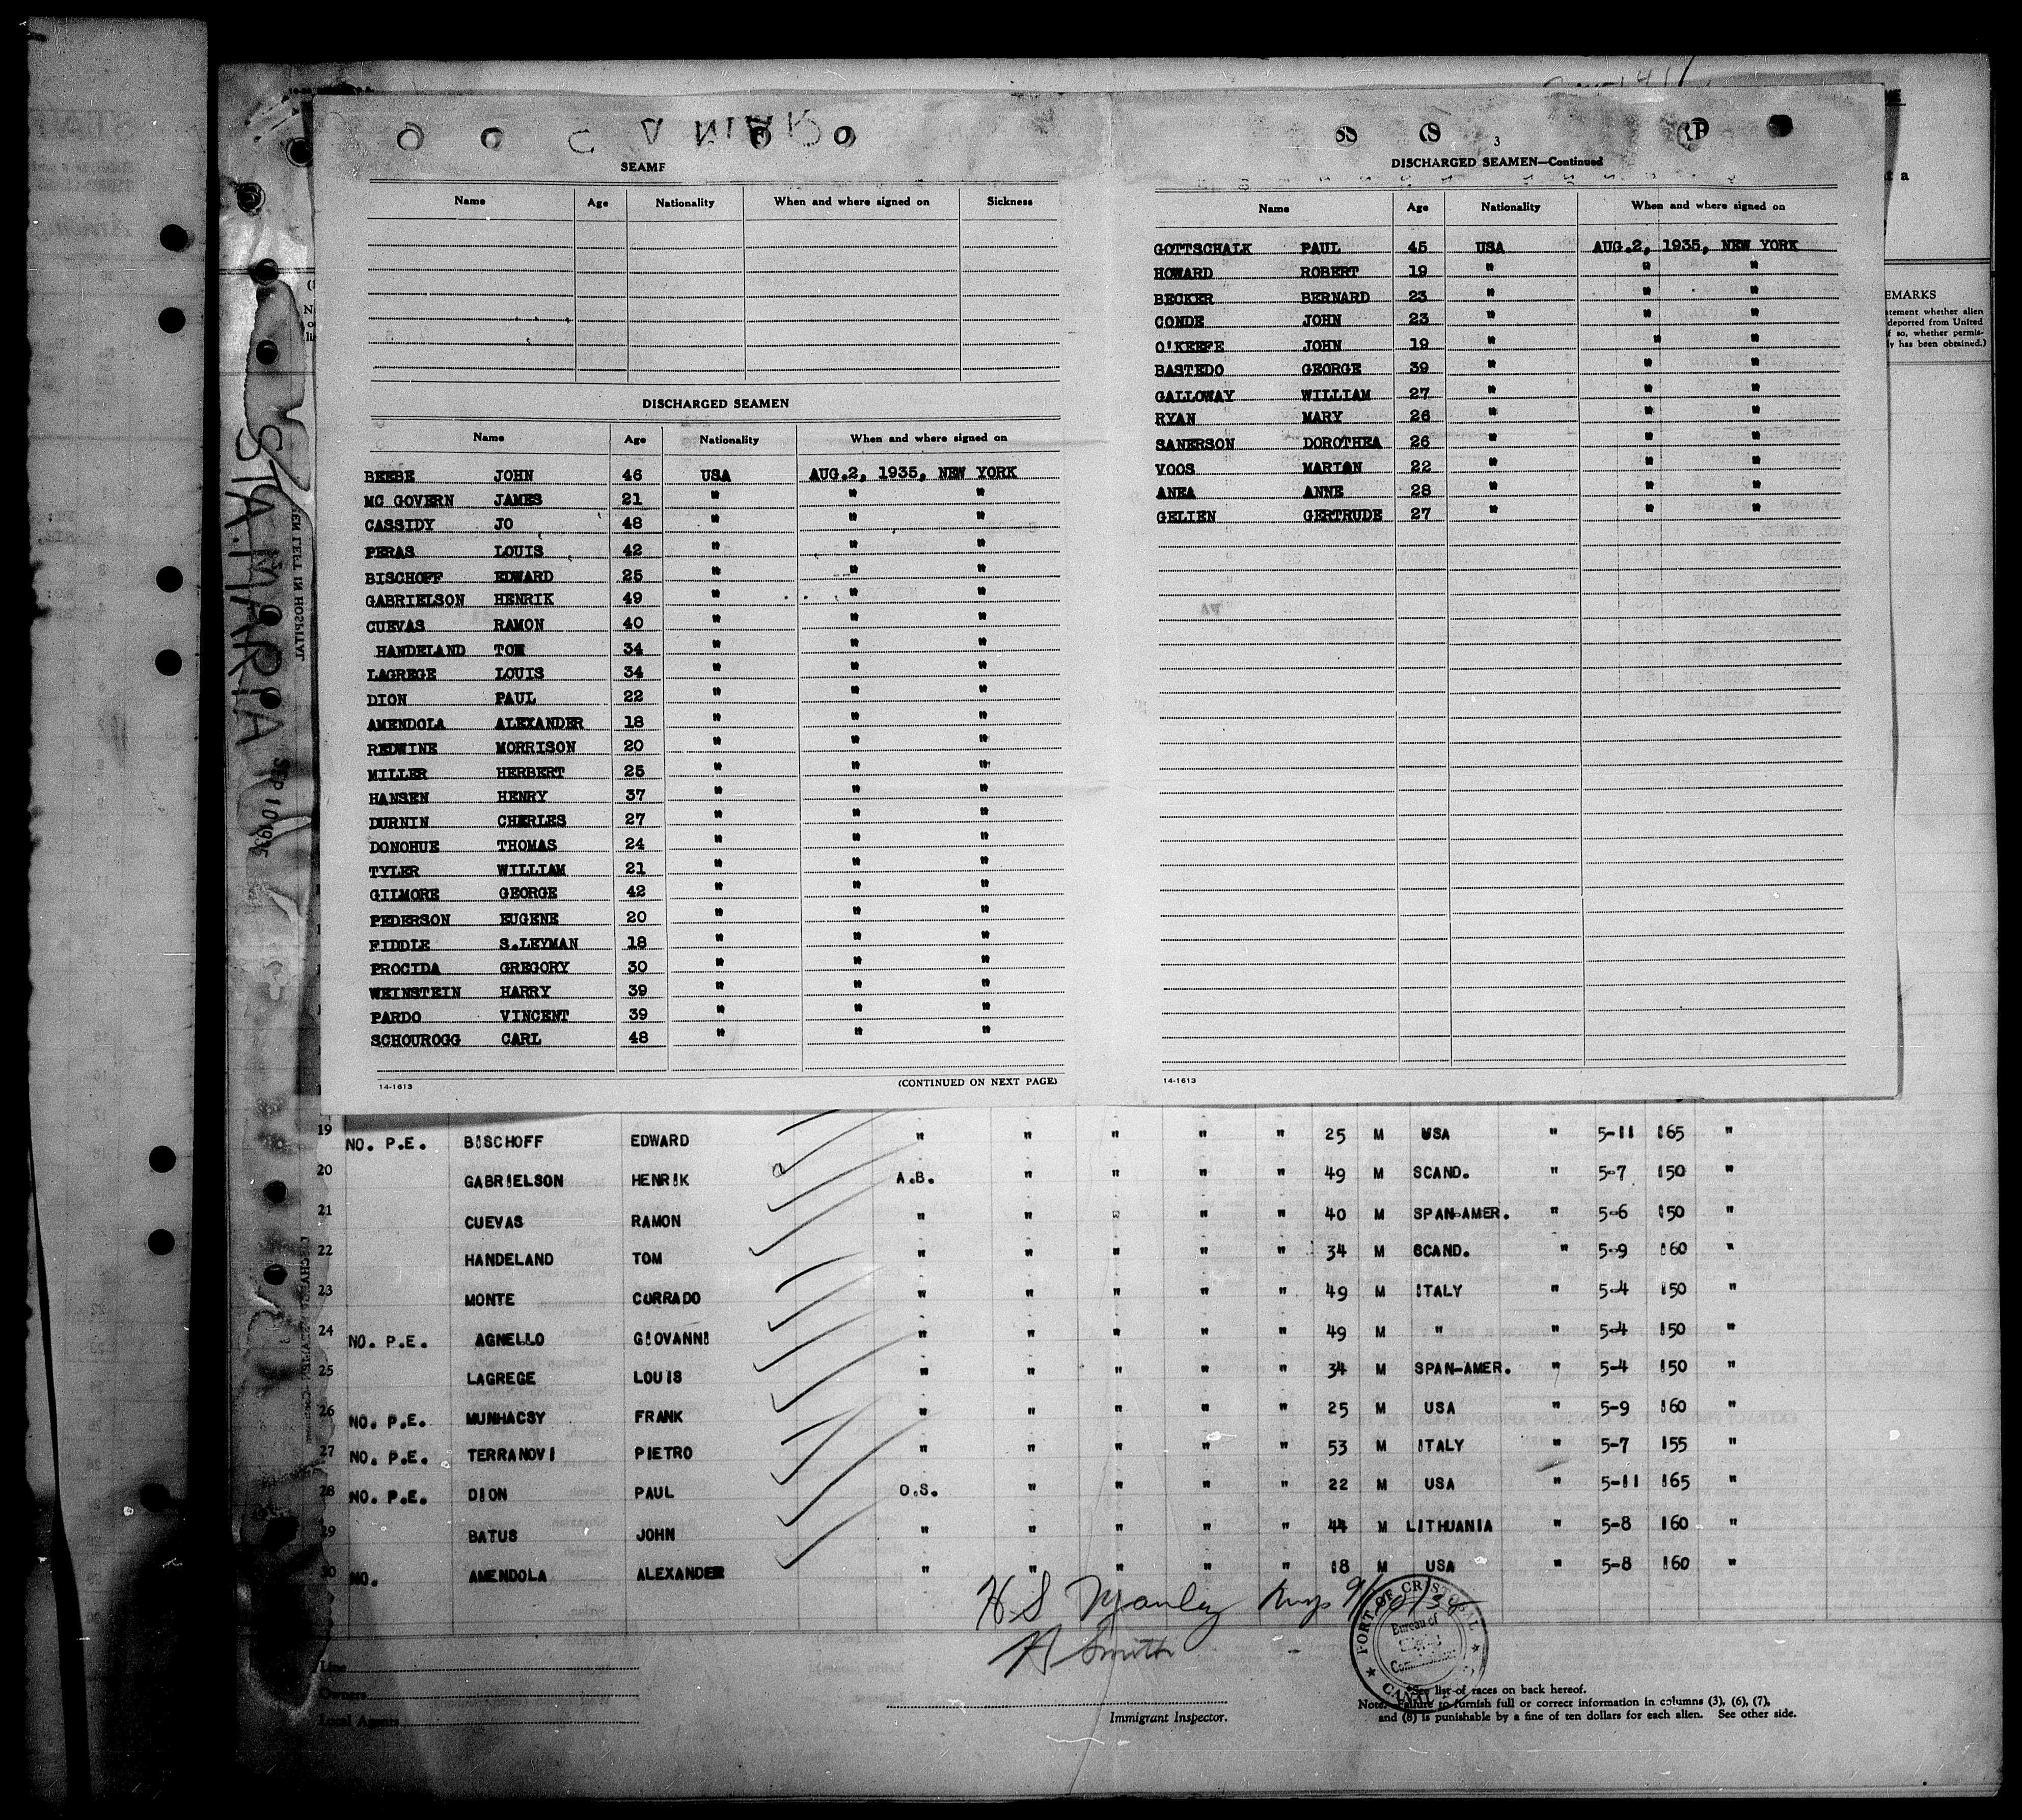 SEAME
Name Age Nationality When and where signed on Sickness
DISCHARGED SEAMEN
Name Age Nationality When and where signed on
BEEBE JOHN 46 USA AUG.2, 1935, NEW YORK
MC GOVERN JAMES 21 " " "
CASSIDY JO 48 " " "
PERAS LOUIS 42 " " "
BISCHOFF EDWARD 25 " " "
GABRIELSON HENRIK 49 " " "
CUEVAS RAMON 40 " " "
HANDELAND TOM 34 " " "
LAGREGE LOUIS 34 " " "
DION PAUL 22 " " "
AMENDOLA ALEXANDER 18 " " "
REDWINE MORRISON 20 " " "
MILLER HERBERT 25 " " "
HANSEN HENRY 37 " " "
DURNIN CHERLES 27 " " "
DONOHUE THOMAS 24 " " "
TYLER WILLIAM 21 " " "
GILMORE GEORGE 42 " " "
PEDERSON EUGENE 20 " " "
FIDDLE S.LEYMAN 18 " " "
PROCIDA GREGORY 30 " " "
WEINSTEIN HARRY 39 " " "
PARDO VINCENT 39 " " "
SCHOUROGG CARL 48 " " "
14-1613 (CONTINUED ON NEXT PAGE)
3
DISCHARGED SEAMEN—Continued
Name Age Nationality When and where signed on
GOTTSCHALK PAUL 45 USA AUG.2, 1935, NEW YORK
HOWARD ROBERT 19 " " "
BECKER BERNARD 23 " " "
CONDE JOHN 23 " " "
O'KEEFE JOHN 19 " " "
BASTEDO GEORGE 39 " " "
GALLOWAY WILLIAM 27 " " "
RYAN MARY 26 " " "
SANERSON DOROTHEA 26 " " "
VOOS MARIAN 22 " " "
ANEA ANNE 28 " " "
GELIEN GERTRUDE 27 " " "
14-1613
EMARKS
atement whether alien
deported from United
f so, whether permis-
ly has been obtained.)
STA. MARIA
SEP 10 1935
19 NO. P.E. BISCHOFF EDWARD " " " " " 25 M USA " 5-11 165 "
20 GABRIELSON HENRIK A.B. " " " " 49 M SCAND. " 5-7 150 "
21 CUEVAS RAMON " " " " " 40 M SPAN-AMER. " 5-6 150 "
22 HANDELAND TOM " " " " " 34 M SCAND. " 5-9 160 "
23 MONTE CORRADO " " " " " 49 M ITALY " 5-4 150 "
24 NO. P.E. AGNELLO GIOVANNI " " " " " 49 M " " 5-4 150 "
25 LAGREGE LOUIS " " " " " 34 M SPAN-AMER. " 5-4 150 "
26 NO. P.E. MUNHACSY FRANK " " " " " 25 M USA " 5-9 160 "
27 NO. P.E. TERRANOVI PIETRO " " " " " 53 M ITALY " 5-7 155 "
28 NO. P.E. DION PAUL O.S. " " " " 22 M USA " 5-11 165 "
29 BATUS JOHN " " " " " 44 M LITHUANIA " 5-8 160 "
30 NO. AMENDOLA ALEXANDER " " " " " 18 M USA " 5-8 160 "
H S Manley
H Smith
PORT OF CRISTOBAL
Bureau of
CANAL
Line
Owners
Local Agents
Immigrant Inspector.
*See list of races on back hereof.
Note.—Failure to furnish full or correct information in columns (3), (6), (7),
and (8) is punishable by a fine of ten dollars for each alien. See other side.